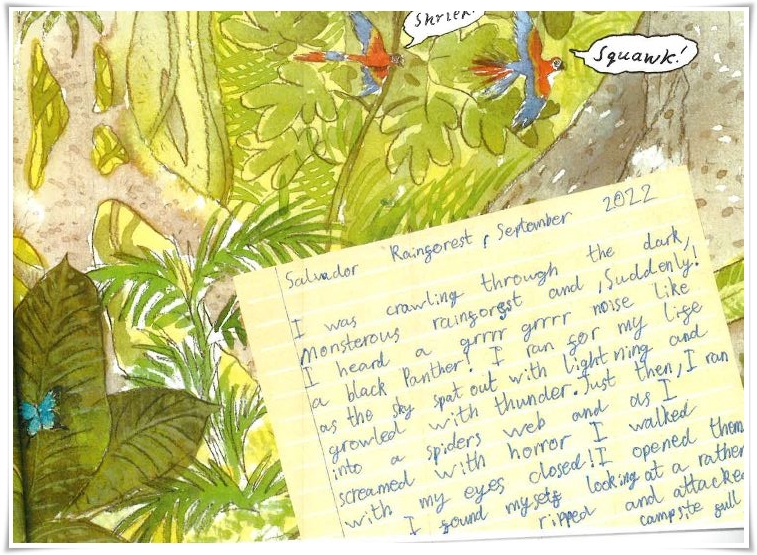 Shriek!
Squawk!
Salvador Rainforest, September 2022
I was crawling through the dark,
Monsterous rainforest and, Suddenly!
I heard a grrrr grrrr noise like
a black Panther! I ran for my life
as the sky spat out with lightning and
growled with thunder. Just then, I ran
into a spiders web and as I
screamed with horror I walked
with my eyes closed! I opened them
I found myself looking at a rather
ripped and attacked
campsite full